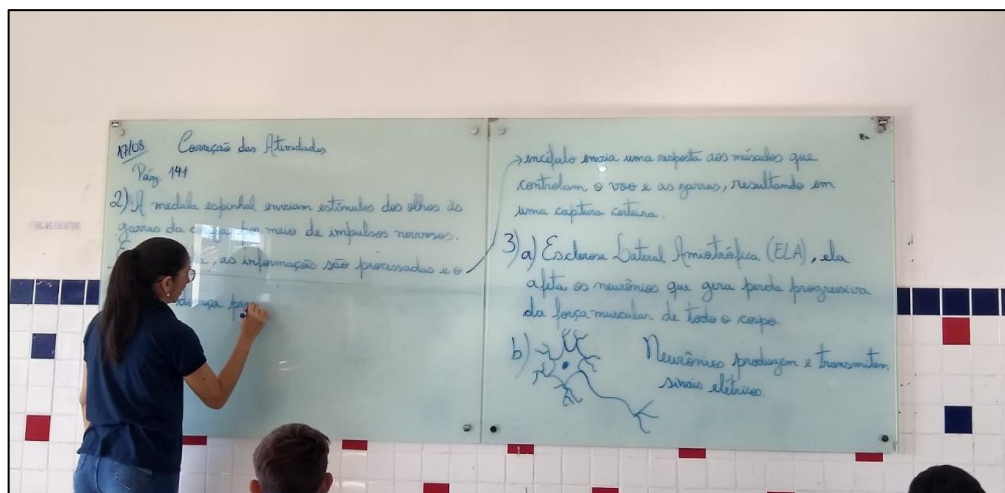 17/08 Correção das Atividades
Pág. 141
2) A medula espinhal enviam estímulos dos olhos às
garras da por meio de impulsos nervosos.
, as informações são processadas e o
doença
encéfalo envia uma resposta aos músculos que
controlam o voo e as garras, resultando em
uma captura certeira.
3) a) Esclerose Lateral Amiotrófica (ELA), ela
afeta os neurônios que gera perda progressiva
da força muscular de todo o corpo
b) Neurônios produzem e transmitem
sinais elétricos.